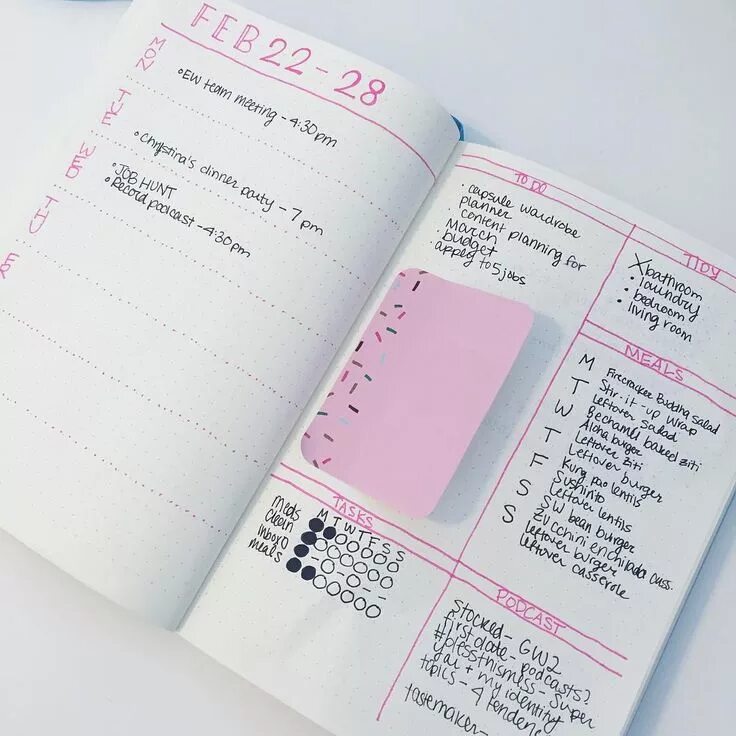 FEB 22-28
MON
• EW team meeting - 4:30pm
TUE
• Christina's dinner party - 7pm
WED
• JOB HUNT
• Record podcast - 4:30pm
THU
FR
TO DO
• capsule wardrobe
planner
• content planning for
March
• budget
• apply to 5 jobs
TIDY
X bathroom
• laundry
• bedroom
• living room
MEALS
M Firecracker Buddha salad
Stir-it-up wrap
T Leftover salad
Bechamel baked ziti
W Aloha burger
Leftover ziti
T Leftover burger
Kung pao lentils
F Sushirito
Leftover lentils
S SW bean burger
Zucchini enchilada cass.
S Leftover burger
Leftover casserole
TASKS
M T W T F S S
meds
clean
inbox 0
meals
PODCAST
Stocked - GW2
First date - podcasts?
#blessthismess - Super
gai + my identity
topics - 4 tendenc
tastemaker -